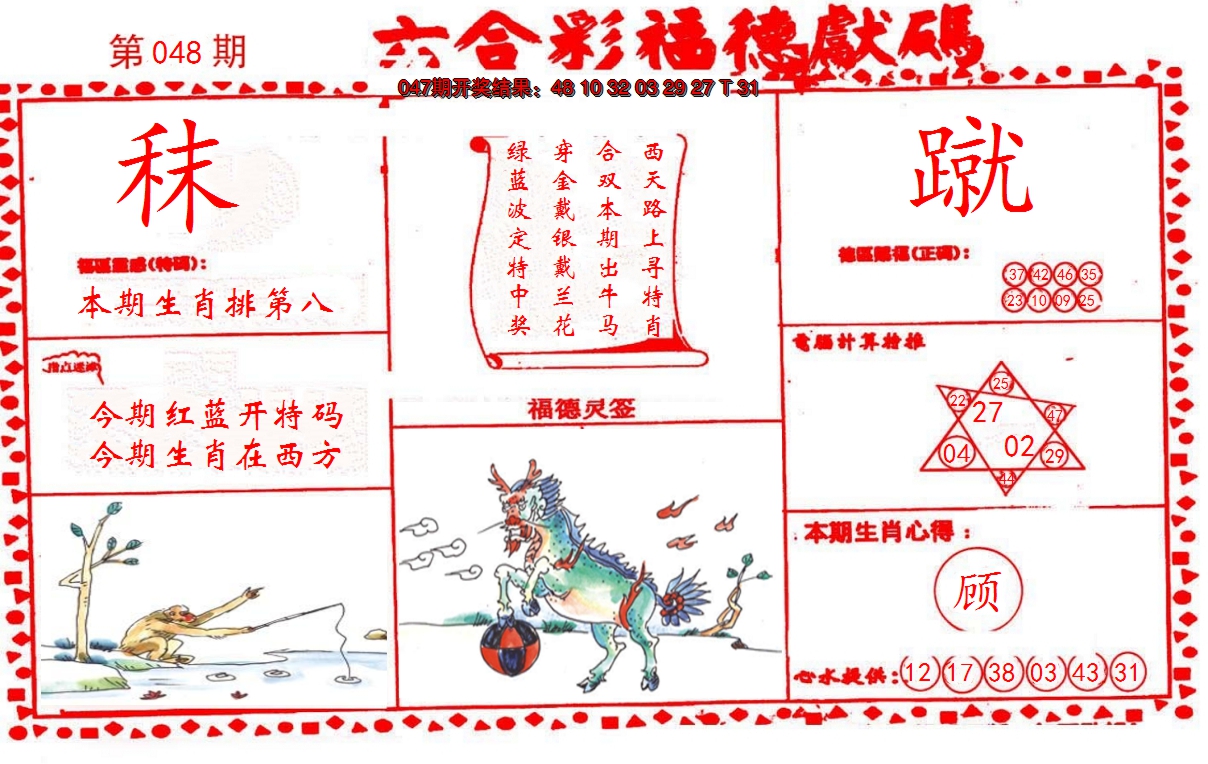 第 048 期
六合彩福德獻碼
047期开奖结果：48 10 32 03 29 27 T 31
秣
福區靈感(特碼)：
本期生肖排第八
西天路上寻特肖
合双本期出牛马
穿金戴银戴兰花
绿蓝波定特中奖
蹴
德區賜福(正碼)：
37 42 46 35
23 10 09 25
指点迷津
今期红蓝开特码
今期生肖在西方
福德灵签
電腦計算榆推
25
22 27 47
04 02 29
44
本期生肖心得：
顾
心水提供：12 17 38 03 43 31